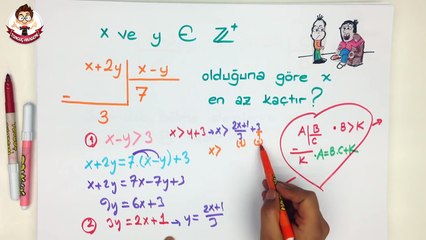 x ve y ∈ ℤ⁺
x+2y | x-y
7
3
olduğuna göre x
en az kaçtır?
① x-y>3
x>y+3 → x> (2x+1)/3 +3
x>
(3)
x+2y=7.(x-y)+3
x+2y=7x-7y+3
9y=6x+3
② 3y=2x+1 → y= (2x+1)/3
A | B
C
K
• B>K
• A=B.C+K